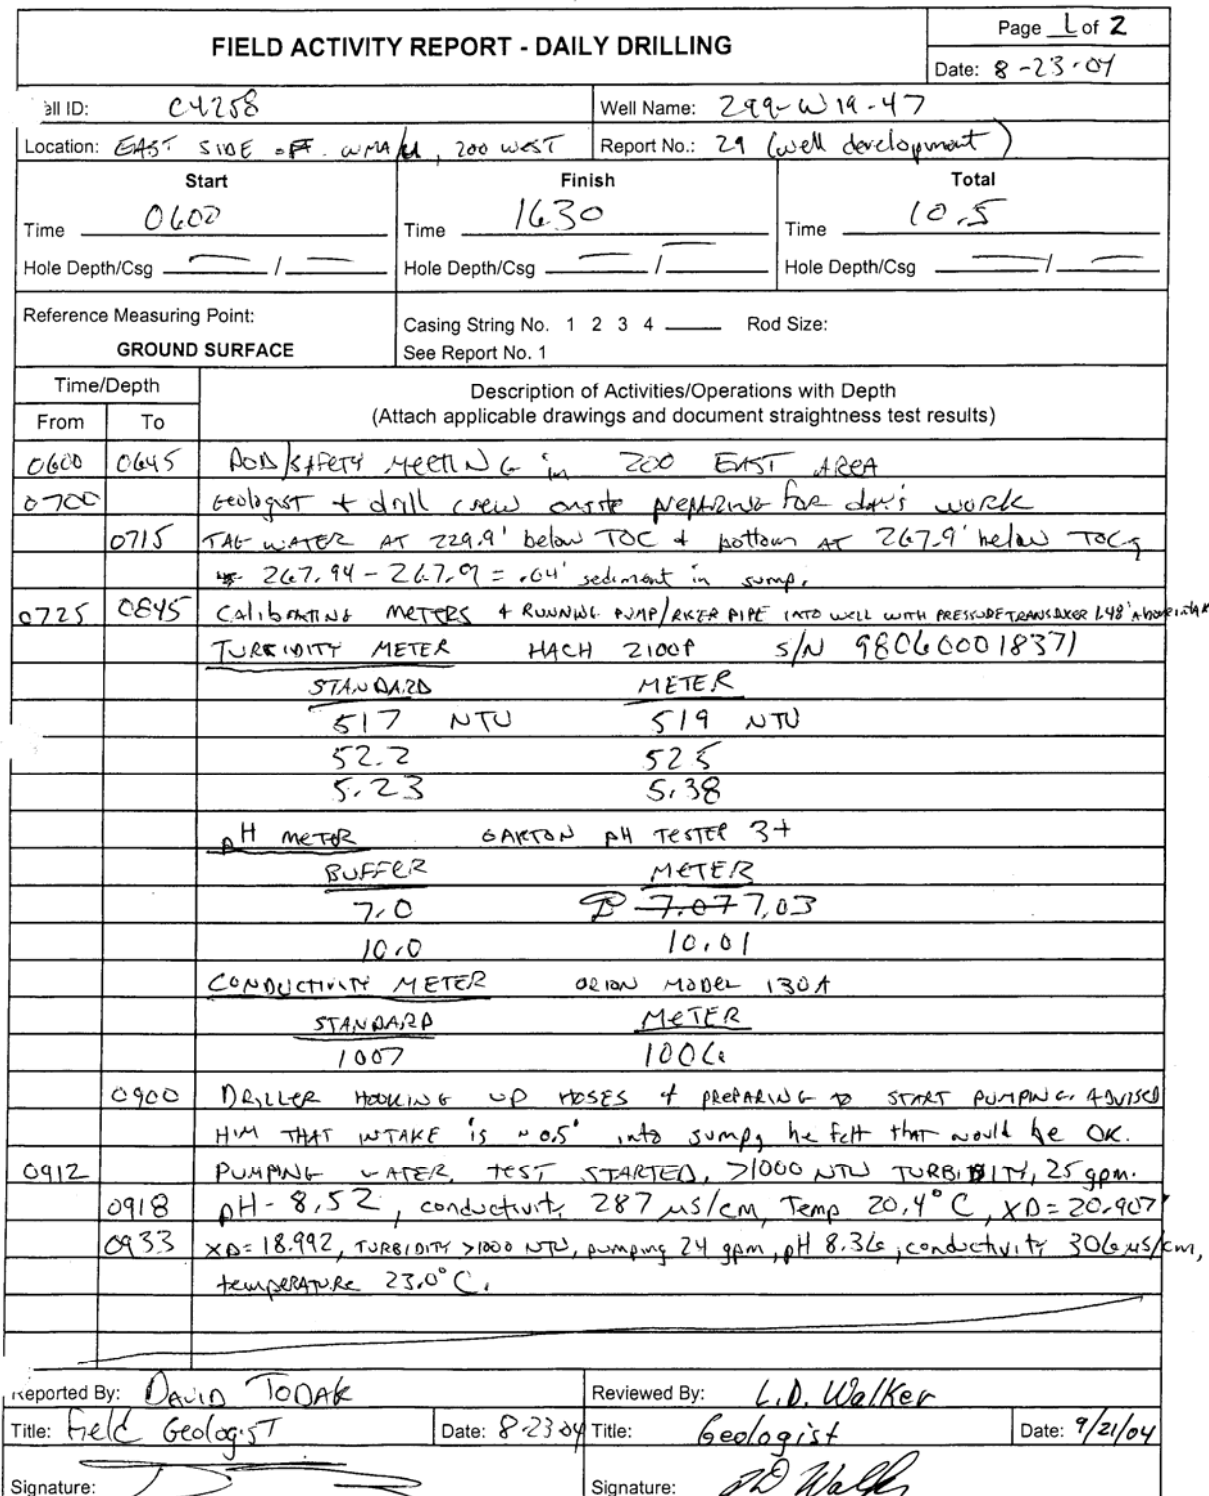 FIELD ACTIVITY REPORT - DAILY DRILLING
Page 1 of 2
Date: 8-23-04
ell ID: C4258
Well Name: 299-W19-47
Location: EAST SIDE OFF WMA/U, 200 WEST
Report No.: 29 (well development)
Start
Finish
Total
Time 0600
Time 1630
Time 10.5
Hole Depth/Csg — / —
Hole Depth/Csg — / —
Hole Depth/Csg — / —
Reference Measuring Point:
GROUND SURFACE
Casing String No. 1 2 3 4 ____ Rod Size:
See Report No. 1
Time/Depth
From To
Description of Activities/Operations with Depth
(Attach applicable drawings and document straightness test results)
0600 0645 POD/SAFETY MEETING in 200 EAST AREA
0700 Geologist + drill crew onsite preparing for day's work
0715 TAG WATER AT 229.9' below TOC + bottom AT 267.9' below TOC,
267.94 - 267.9 = .04' sediment in sump.
0725 0845 Calibrating METERS + RUNNING PUMP/RISER PIPE INTO WELL WITH PRESSURE TRANSDUCER 1.48' Above intak
TURBIDITY METER HACH 2100P S/N 980600018371
STANDARD METER
517 NTU 519 NTU
52.2 52.5
5.23 5.38
pH METER OAKTON pH TESTER 3+
BUFFER METER
7.0 7.07 7.03
10.0 10.01
CONDUCTIVITY METER ORION MODEL 130A
STANDARD METER
1007 1006
0900 DRILLER HOOKING UP HOSES + PREPARING TO START PUMPING. ADVISED
HIM THAT INTAKE is ~0.5' into sump, he felt that would be OK.
0912 PUMPING WATER, TEST STARTED, >1000 NTU TURBIDITY, 25 gpm.
0918 pH - 8.52, conductivity 287 µs/cm, Temp 20.4°C, XD=20.907'
0933 XD=18.992, TURBIDITY >1000 NTU, pumping 24 gpm, pH 8.36, conductivity 306 µs/cm,
temperature 23.0°C.
Reported By: DAVID TODAK
Reviewed By: L.D. Walker
Title: Field Geologist
Date: 8-23-04
Title: Geologist
Date: 9/21/04
Signature:
Signature: LD Walker